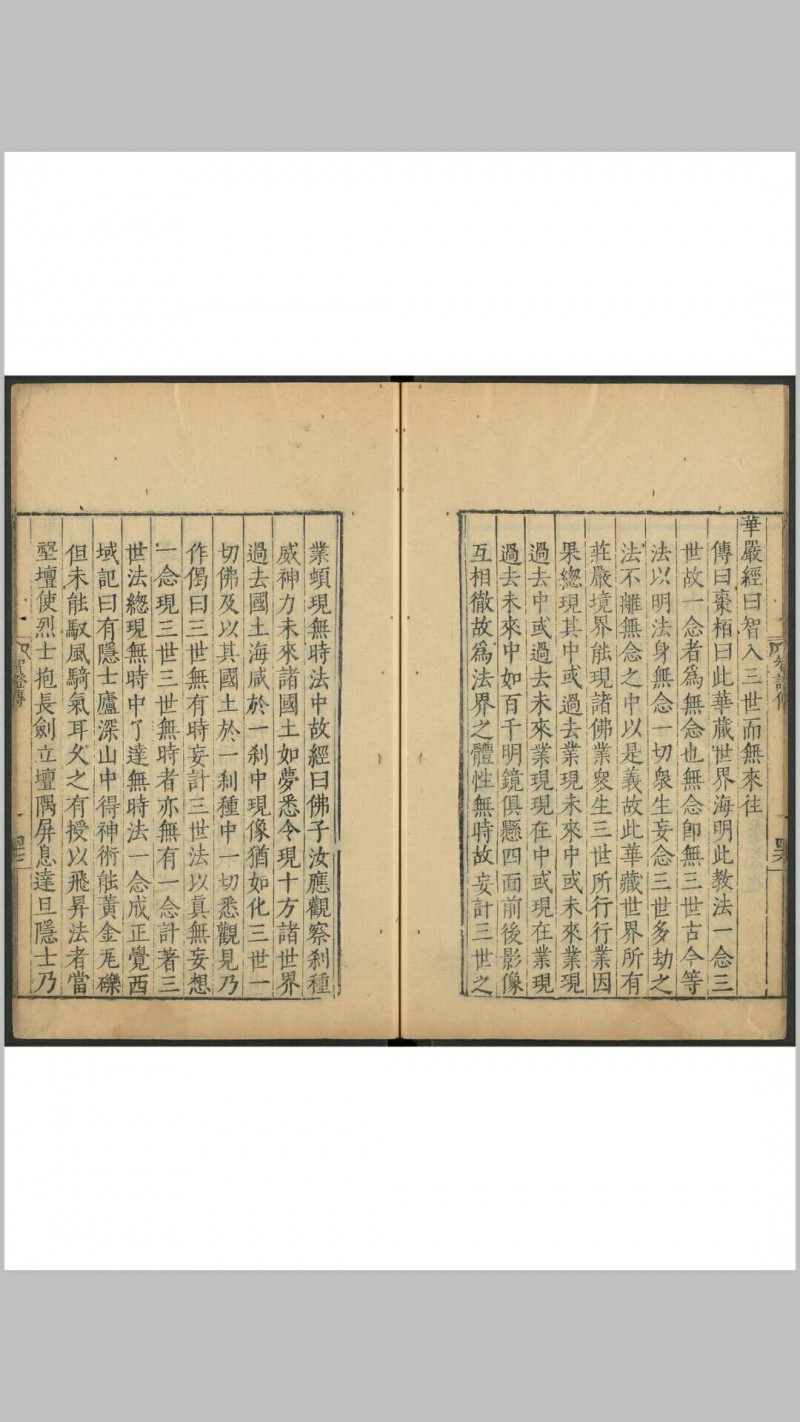 華嚴經曰智入三世而無來往
傳曰棗栢曰此華藏世界海明此教法一念三
世故一念者爲無念也無念卽無三世古今等
法以明法身無念一切衆生妄念三世多劫之
法不離無念之中以是義故此華藏世界所有
莊嚴境界能現諸佛業衆生三世所行行業因
果緫現其中或過去業現未來中或未來業現
過去中或過去未來業現現在中或現在業現
過去未來中如百千明鏡俱懸四面前後影像
互相徹故爲法界之體性無時故妄計三世之
業頓現無時法中故經曰佛子汝應觀察刹種
威神力未來諸國土如夢悉令現十方諸世界
過去國土海咸於一刹中現像猶如化三世一
切佛及以其國土於一刹種中一切悉觀見乃
作偈曰三世無有時妄計三世法以真無妄想
一念現三世三世無時者亦無有一念計著三
世法緫現無時中了達無時法一念成正覺西
域記曰有隱士廬深山中得神術能黃金瓦礫
但未能馭風騎氣耳久之有授以飛昇法者當
壂壇使烈士抱長劍立壇隅屏息達旦隱士乃